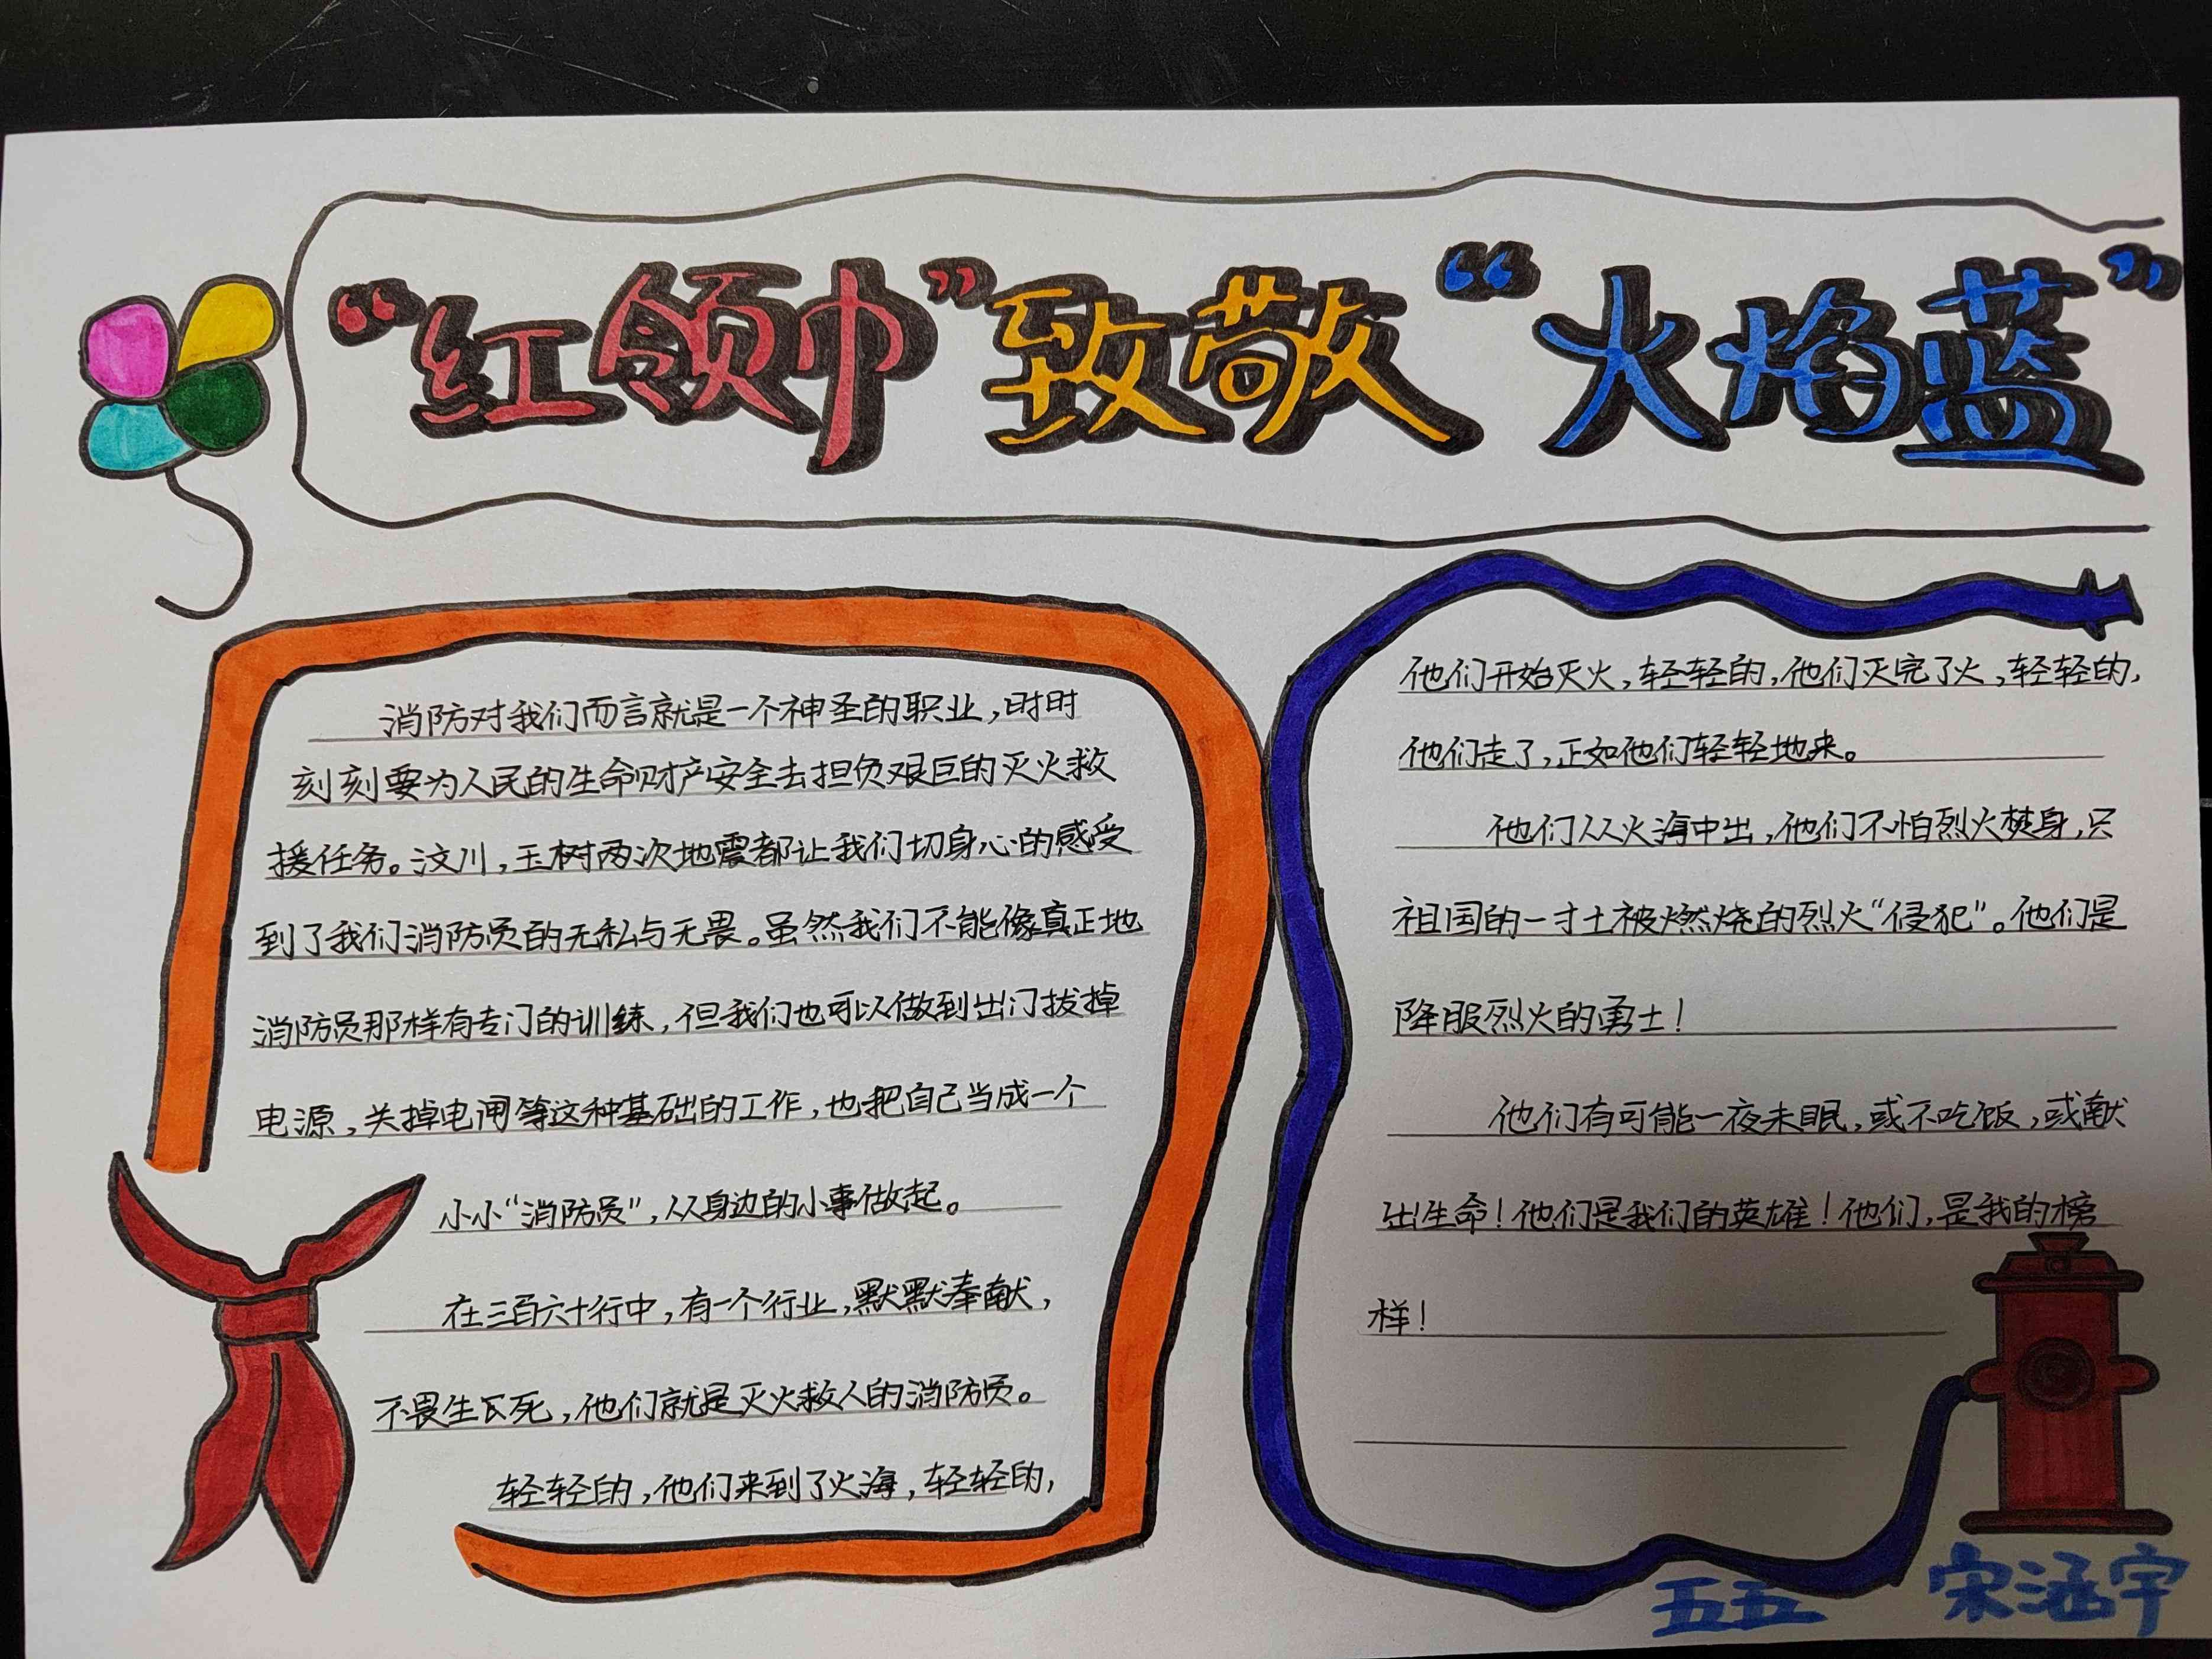 “红领巾”致敬“火焰蓝”
消防对我们而言就是一个神圣的职业，时时
刻刻要为人民的生命财产安全去担负艰巨的灭火救
援任务。汶川，玉树两次地震都让我们切身心的感受
到了我们消防员的无私与无畏。虽然我们不能像真正地
消防员那样有专门的训练，但我们也可以做到出门拔掉
电源，关掉电闸等这种基础的工作，也把自己当成一个
小小“消防员”，从身边的小事做起。
在三百六十行中，有一个行业，默默奉献，
不畏生死，他们就是灭火救人的消防员。
轻轻的，他们来到了火海，轻轻的，
他们开始灭火，轻轻的，他们灭完了火，轻轻的，
他们走了，正如他们轻轻地来。
他们从火海中出，他们不怕烈火焚身，只
祖国的一寸土被燃烧的烈火“侵犯”。他们是
降服烈火的勇士！
他们有可能一夜未眠，或不吃饭，或献
出生命！他们是我们的英雄！他们，是我的榜
样！
五五 宋涵宇